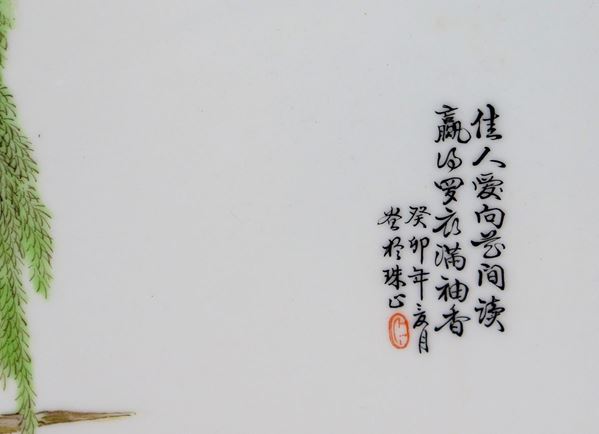 佳人爱向花间读
赢得罗衣满袖香
癸卯年夏月
㞮于珠山